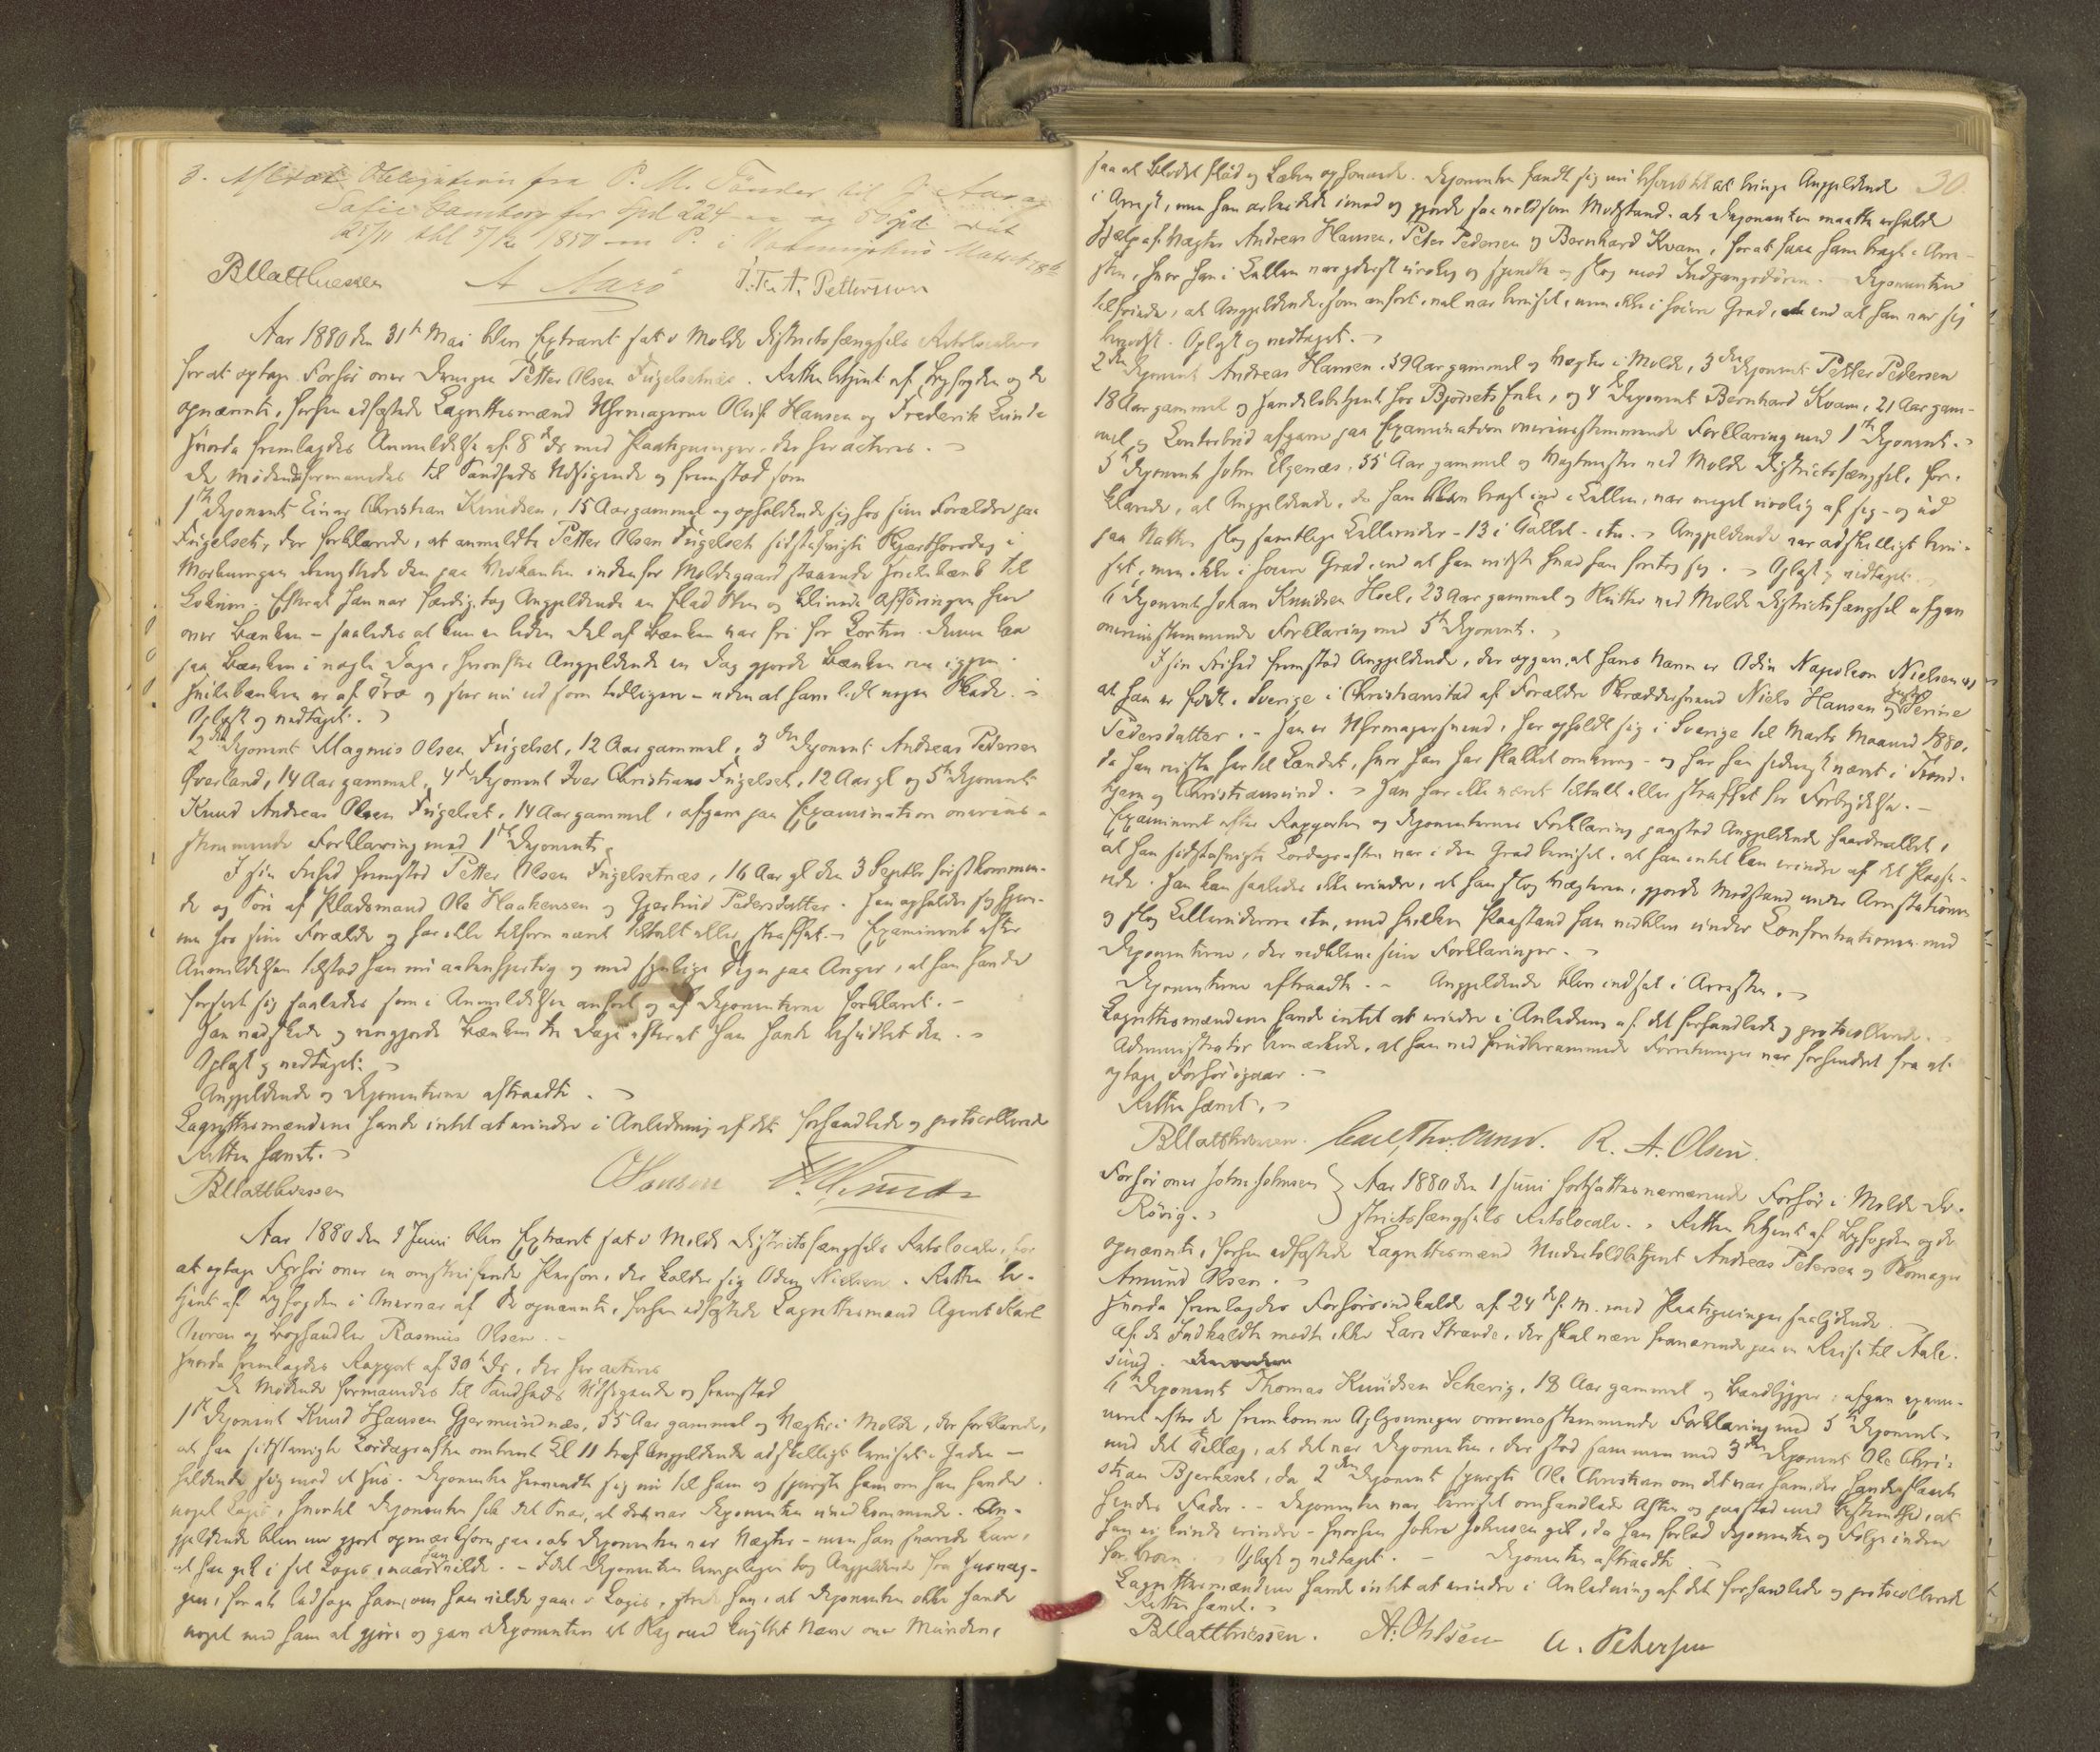 3. Obligation fra P. M. Tønder til J. Aarø og
for Spd 224
1850 P. i
BMatthiessen A Aarø J. Fr. A. Pettersson
Aar 1880 den 31te Mai blev Extraret sat i Molde Districtsfængsels Retslocale
for at optage Forhør over Drengen Petter Olsen Fugelsetnæs. Retten betjent af Byfogden og de
opnævnte, forhen edfæstede Lagrettesmænd Uhrmagerne Oluf Hansen og Frederik Lunde
Hvorda fremlagdes Anmeldelse af 8de ds med Paategninger, der her acteres.
De mødende formanedes til Sandheds Udsigende og fremstod som
1ste Deponent Einar Christian Knudsen, 15 Aar gammel og opholdende sig hos sine Forældre paa
Fugelset, der forklarede, at anmeldte Petter Olsen Fugelset sidstafvigte Skjærthorsdag i
Morbumgen benyttede den paa Veikanten indenfor Moldegaard staaende Hvilebænk til
Lokum. Efterat han var færdig, tog Angjeldende en flad Sten og klinede Afføringen hen
over Bænken – saaledes at kun en liden Del af Bænken var fri for Lorten. Denne laa
paa Bænken i nogle Dage, hvorefter Angjeldende en Dag gjorde Bænken ren igjen.
Hvilebænken er af Træ og ser nu ud som tidligere – uden at have lidt nogen Skade.
Oplæst og vedtaget.
2den Deponent Magnus Olsen Fugelset, 12 Aar gammel, 3die Deponent Andreas Pedersen
Øverland, 14 Aar gammel, 4de Deponent Iver Christians Fugelset, 12 Aar gl og 5te Deponent
Knud Andreas Olsen Fugelset, 14 Aar gammel, afgave paa Examination overens-
stemmende Forklaring med 1ste Deponent.
I sin Frihed fremstod Petter Olsen Fugelsetnæs, 16 Aar gl den 3 Septbr førstkommen-
de og Søn af Pladsmand Ole Haakensen og Gjertrud Pedersdatter. Han opholder sig hjem-
me hos sine Forældre og har ikke tilforn været tiltalt eller straffet. Examineret efter
Anmeldelsen tilstod han nu aabenhjertig og med synlige Tegn paa Anger, at han havde
forholdt sig saaledes som i Anmeldelsen anført og af Deponenterne forklaret.
Han vadskede og rengjorde Bænken tre Dage efterat han havde besudlet den.
Oplæst og vedtaget.
Angjeldende og Deponenterne aftraadte.
Lagrettesmændene havde intet at erindre i Anledning af det forhandlede og protocollerede
Retten hævet.
BMatthiessen OHansen F. Lunde
Aar 1880 den 1 Juni blev Extraret sat i Molde Districtsfængsels Retslocale, for
at optage Forhør over en omstreifende Person, der kalder sig Odin Nielsen. Retten be-
tjent af Byfogden i Overvær af de opnævnte, forhen edfæstede Lagrettesmænd Agent Karl
Thoren og Boghandler Rasmus Olsen.
Hvorda fremlagdes Rapport af 30te ds, der her acteres
De Mødende formanedes til Sandheds Udsigende og fremstod
1ste Deponent Knud Hansen Gjermundnæs, 55 Aar gammel og Vægter i Molde, der forklarede,
at han sidstafvigte Lørdagsaften omtrent Kl 11 traf Angjeldende adskilligt beruset i Gaden –
holdende sig med et Hus. Deponenten henvendte sig nu til ham og spurgte ham om han havde
noget Logis, hvortil Deponenten fik det Svar, at det var Deponenten uvedkommende. An-
gjeldende blev nu gjort opmærksom paa, at Deponenten var Vægter – men han svarede kun,
at han gik i sit Logis, naar han vilde. – Idet Deponenten lempeligen tog Angjeldende fra Husvæg-
gen, for at ledsage ham, om han vilde gaae i Logis, skreg han, at Deponenten ikke havde
noget med ham at gjøre og gav Deponenten et Slag med knyttet Næve over Munden,
30.
saa at Blodet flød og Læben ophovnede. Deponenten fandt sig nu beføiet til at bringe Angjeldende
i Arrest, men han arbeidede imod og gjorde saa voldsom Modstand, at Deponenten maatte erholde
Hjælp af Vægter Andreas Hansen, Peter Pedersen og Bernhard Kvam, for at faae ham bragt i Arre-
sten, hvor han i Cellen var yderst urolig og spændte og slog mod Indgangsdøren. Deponenten
tilføiede, at Angjeldende, som anført, vel var beruset, men ikke i høiere Grad, end at han var sig
bevidst. Oplæst og vedtaget.
2den Deponent Andreas Hansen, 39 Aar gammel og Vægter i Molde, 3die Deponent Petter Pedersen
18 Aar gammel og Handelsbetjent hos Bjørsets Enke, og 4de Deponent Bernhard Kvam, 21 Aar gam-
mel og Contorbud afgave paa Examination overensstemmende Forklaring med 1ste Deponent.
5te Deponent John Elgenæs, 55 Aar gammel og Vagtmester ved Molde Districtsfængsel, for-
klarede, at Angjeldende, da han blev bragt ind i Cellen, var meget urolig af sig – og ud
paa Natten slog samtlige Celleruder – 13 i Tallet – itu. Angjeldende var adskilligt beru-
set, men ikke i høiere Grad, end at han vidste hvad han foretog sig. Oplæst og vedtaget.
6te Deponent Johan Knudsen Hoel, 23 Aar gammel og Slutter ved Molde Districtsfængsel afgav
overensstemmende Forklaring med 5te Deponent.
I sin Frihed fremstod Angjeldende, der opgav, at hans Navn er Odin Napoleon Nielsen og
at han er født i Sverige i Christianstad af Forældre Skræddersvend Niels Hansen og Hustru Serine
Pedersdatter. – Han er Uhrmagersvend, har opholdt sig i Sverige til Marts Maaned 1880,
da han reiste her til Landet, hvor han har flakket omkring – og har han sidst været i Trond-
hjem og Christianssund. Han har ikke været tiltalt eller straffet for Forbrydelse. –
Examineret efter Rapporten og Deponenternes Forklaring paastod Angjeldende haardnakket,
at han sidstafvigte Lørdagsaften var i den Grad beruset, at han intet kan erindre af det Passe-
rede. Han kan saaledes ikke erindre, at han slog Vægteren, gjorde Modstand under Arrestationen
og slog Celleruderne itu, med hvilken Paastand han vedblev under Confrontationen med
Deponenterne, der vedbleve sine Forklaringer.
Deponenterne aftraadte. – Angjeldende blev indsat i Arresten.
Lagrettesmændene havde intet at erindre i Anledning af det forhandlede og protocollerede.
Administrator bemærkede, at han ved forudberammede Forretninger var forhindret fra at
optage Forhør igaar.
Retten hævet.
BMatthiessen. Carl Thoren. R. A. Olsen.
Forhør over John Johnsen
Røvig.
Aar 1880 den 1 Juni fortsattes nærværende Forhør i Molde Di-
strictsfængsels Retslocale. Retten betjent af Byfogden og de
opnævnte, forhen edfæstede Lagrettesmænd Undertoldbetjent Andreas Petersen og Skomager
Amund Olsen.
Hvorda fremlagdes Forhørsindkalde af 24de f. M. med Paategninger saalydende.
Af de Indkaldte mødte ikke Lars Strande, der skal være fraværende paa en Reise til Aale-
sund.
6te Deponent Thomas Knudsen Schevig, 18 Aar gammel og afgav exami-
neret efter de fremkomne Oplysninger overensstemmende Forklaring med 5te Deponent
med det Tillæg, at det var Deponenten, der stod sammen med 3die Deponent Ole Chri-
stian Bjerkeset, da 2den Deponent spurgte Ole Christian om det var ham, der havde
hendes Fader. – Deponenten var beruset omhandlede Aften og paastod med Bestemthed, at
han ei kunde erindre – hvorhen John Johnsen gik, da han forlod Deponenten og Følge inden
for Broen. Oplæst og vedtaget. – Deponenten aftraadte
Lagrettesmændene havde intet at erindre i Anledning af det forhandlede og protocollerede
Retten hævet.
BMatthiessen. A. Ohlsen A. Petersen